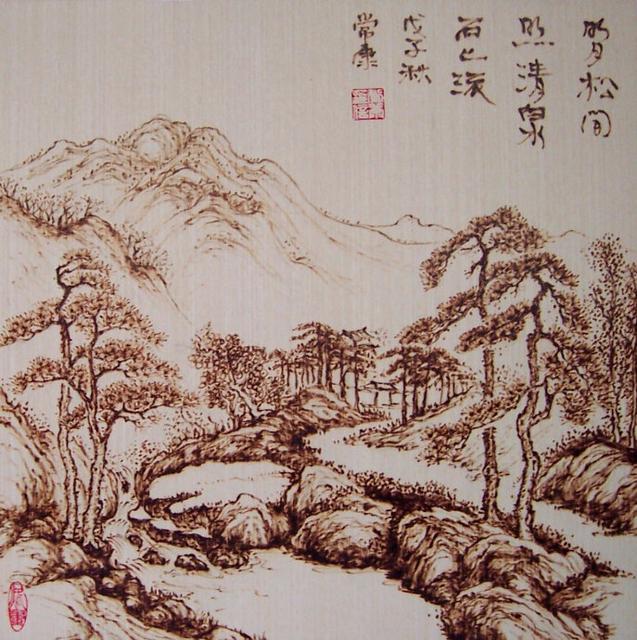 明月松间
照清泉
石上流
戊子秋
常康